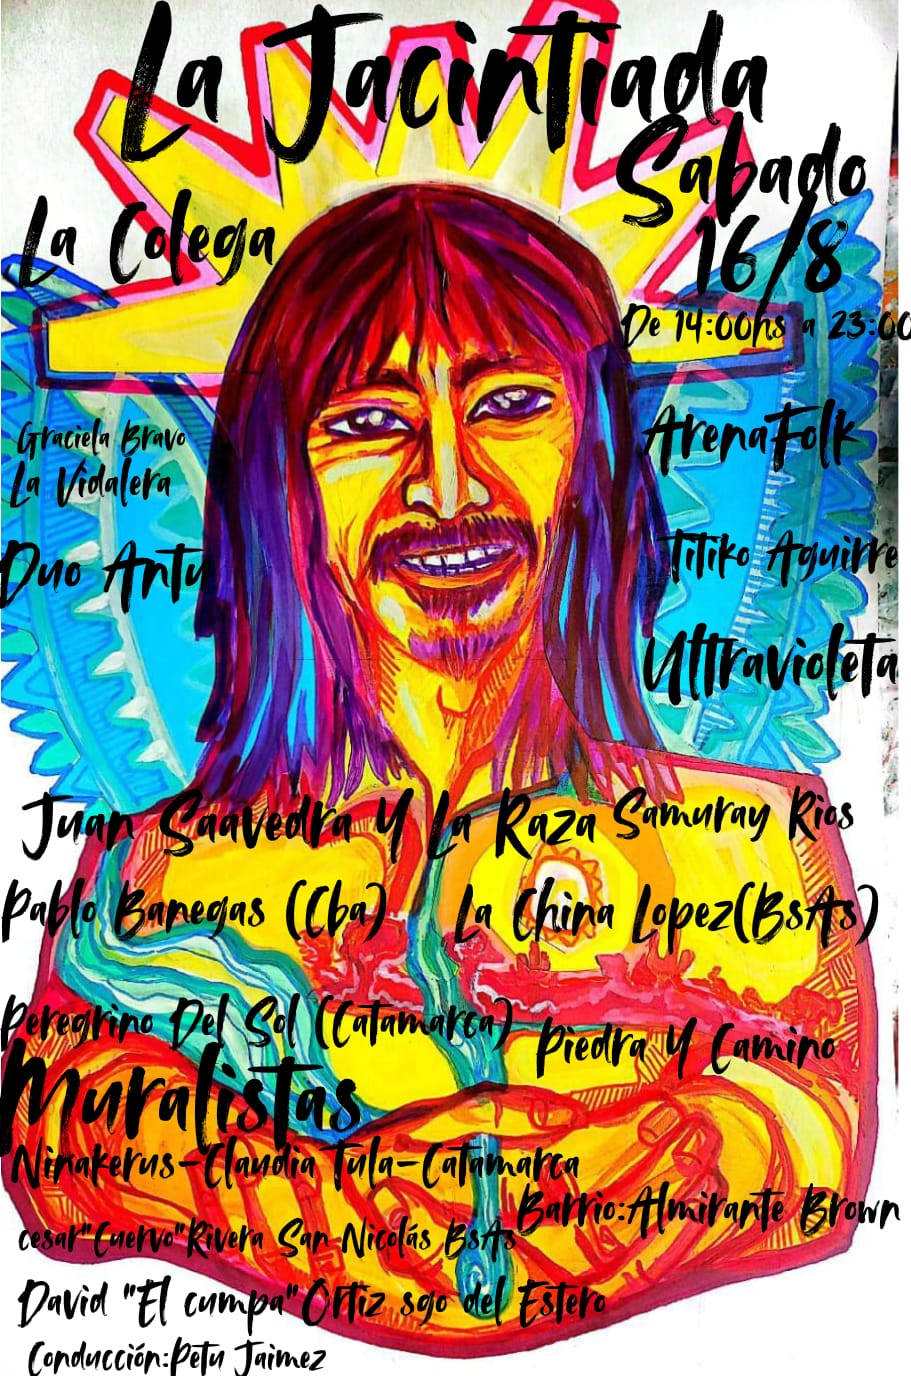 La Jacintiada
Sabado
16/8
De 14:00hs a 23:00
La Colega
Graciela Bravo
La Vidalera
ArenaFolk
Duo Antu
Titiko Aguirre
Ultravioleta
Juan Saavedra Y La Raza
Samuray Rios
Pablo Banegas (Cba)
La China Lopez(BsAs)
Peregrino Del Sol (Catamarca)
Piedra Y Camino
Muralistas
Ninakerus-Claudia Tula-Catamarca
Barrio:Almirante Brown
cesar"Cuervo"Rivera San Nicolás BsAs
David "El cumpa"Ortiz sgo del Estero
Conducción:Petu Jaimez